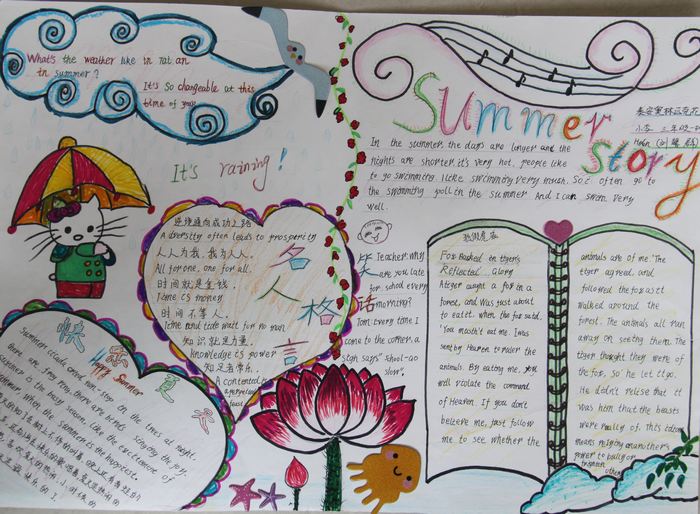 What's the weather like in
in summer?
It's so changeable at this
time of year
It's raining!
Summer
Story
In the summer, the days are longer and the
nights are shorter. it's very hot. people like
to go swimming. I like swimming very much. So I often go to
the swimming pool in the summer And I can swim very
well.
逆境通向成功之路
Adversity often leads to prosperity
人人为我,我为人人.
All for one, one for all.
时间就是金钱.
Time is money
时间不等人.
Time and tide wait for no man
知识就是力量.
knowledge is power
知足者常乐.
A contented
is a perpetual
feast
名人格言
笑话
Teacher: Why
are you late
for school every
morning?
Tom: Every time I
come to the corner, a
sign says "School-Go
slow".
快乐夏天
Happy Summer
Summer cicada cried non-stop on the trees at night
there are frog from, there are birds singing the joy,
summer is the busy season, like the excitement of
summer, when the summer is the happiest.
Fox Basked in tiger's
Reflected Glory
A tiger caught a fox in a
forest, and was just about
to eat it. when the fox said.
'You mustn't eat me. I was
sent by Heaven to ruler the
animals. By eating me, you
will violate the command
of Heaven. If you don't
believe me, just follow
me to see whether the
animals are of me.' The
tiger agreed, and
followed the fox as it
walked around the
forest. The animals all ran
away on seeing them. The
tiger thought they were of
the fox, so he let it go.
He didn't relise that it
was him that the beasts
were really of. this idiom
means relying on another's
power to bully or
others